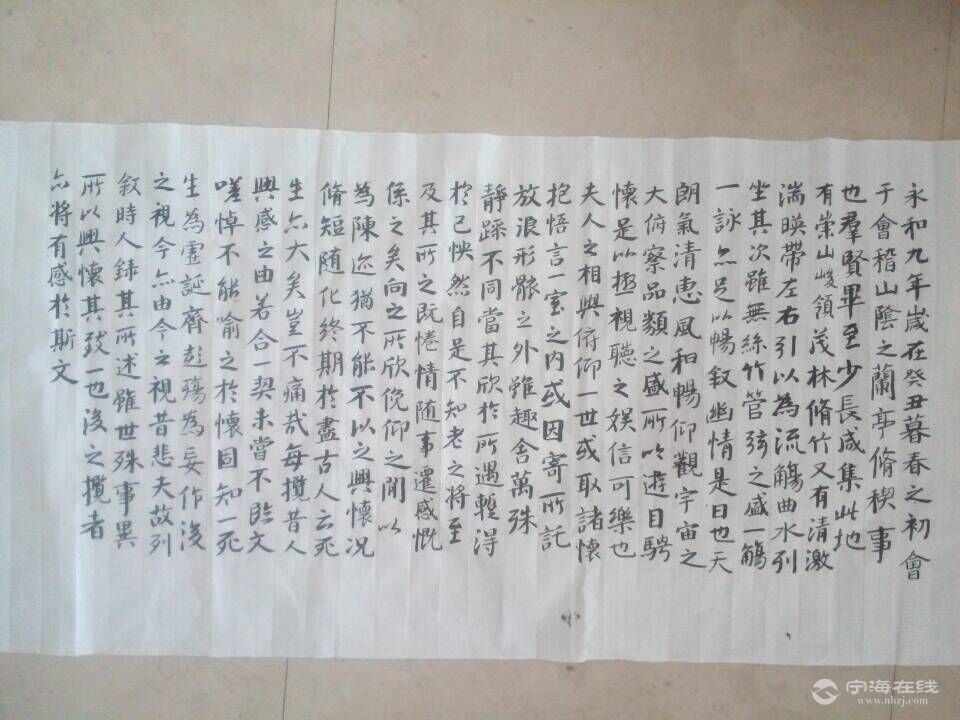 永和九年歲在癸丑暮春之初會
于會稽山陰之蘭亭脩禊事
也羣賢畢至少長咸集此地
有崇山峻領茂林脩竹又有清激
湍暎帶左右引以為流觴曲水列
坐其次雖無絲竹管弦之盛一觴
一詠亦足以暢叙幽情是日也天
朗氣清惠風和暢仰觀宇宙之
大俯察品類之盛所以遊目騁
懷是以極視聽之娛信可樂也
夫人之相與俯仰一世或取諸懷
抱悟言一室之内或因寄所託
放浪形骸之外雖趣舍萬殊
靜躁不同當其欣於所遇暫得
於己怏然自足不知老之將至
及其所之既惓情随事遷感慨
係之矣向之所欣俛仰之間以
為陳迹猶不能不以之興懷況
脩短随化終期於盡古人云死
生亦大矣豈不痛哉每攬昔人
興感之由若合一契未嘗不臨文
嗟悼不能喻之於懷固知一死
生為虛誕齊彭殤為妄作後
之視今亦由今之視昔悲夫故列
叙時人錄其所述雖世殊事異
所以興懷其致一也後之攬者
亦將有感於斯文
宁海在线
www.nhzj.com